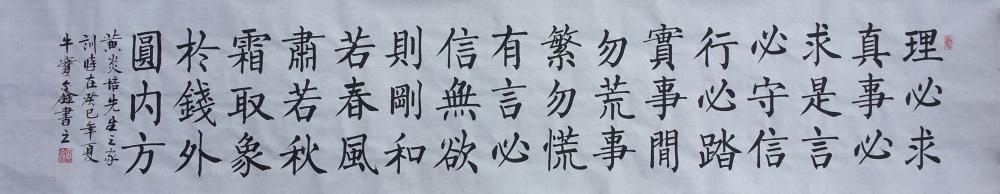 理必求
真事必
求是言
必守信
行必踏
實事閒
勿荒事
繁勿慌
有言必
信無欲
則剛和
若春風
肅若秋
霜取象
於錢外
圓内方
黃炎培先生之家
訓時在癸巳年夏
牛寶鑫書之